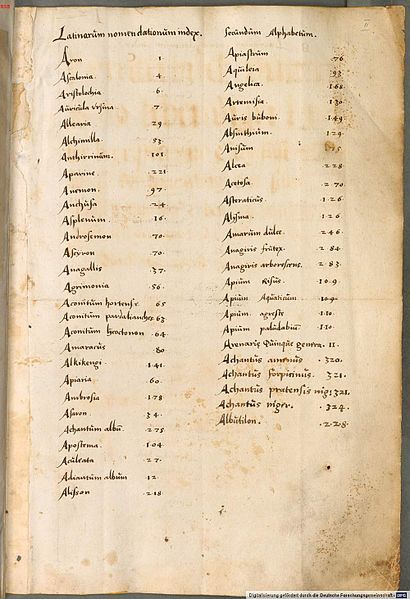 Latinarum nomendationum index.
Aron 1
Ascalonia 4
Aristolochia 6
Auricula ursina 7
Allearia 29
Alchimilla 53
Anthirrinum 101
Aparine 221
Anemon 97
Anchusa 24
Asplenum 16
Androsemon 70
Ascyron 70
Anagallis 37
Agrimonia 56
Aconitum hortense 65
Aconitum pardalianches 63
Aconitum lycoctonon 64
Amaracus 80
Alkikengi 141
Apiaria 60
Ambrosia 178
Asaron 34
Achantum albū 275
Apostema 104
Aculeata 27
Adiantum album 12
Alisson 218
Secundum Alphabetum.
Apiastrum 76
Aquileia 93
Angelica 168
Artemisia 130
Auris buboni 149
Absinthium 129
Anisum
Alcea 228
Acetosa 270
Asteraticus 126
Alysma 126
Amarum dulce 246
Anagiris frutex 284
Anagiris arborescens 283
Apium risus 109
Apium Aquaticum 109
Apium agreste 110
Apium paludabium 110
Arenaris Quinque genera 11
Achantus amenus 320.
Achantus forpicinus 321.
Achantus pratensis nig: 321.
Achantus niger. 324.
Albutilon. 228.
Digitalisierung gefördert durch die Deutsche Forschungsgemeinschaft DFG